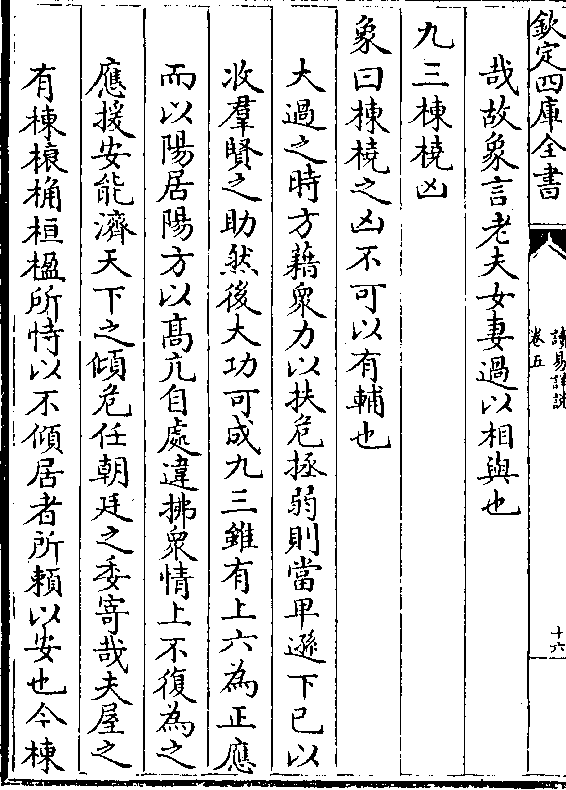 欽定四庫全書
讀易詳説
卷五
十六
哉故象言老夫女妻過以相與也
九三棟橈凶
象曰棟橈之凶不可以有輔也
大過之時方藉衆力以扶危拯弱則當卑遜下已以
收羣賢之助然後大功可成九三雖有上六為正應
而以陽居陽方以髙亢自處違拂衆情上不復為之
應援安能濟天下之傾危任朝廷之委寄哉夫屋之
有棟榱桷桓楹所恃以不傾居者所賴以安也今棟